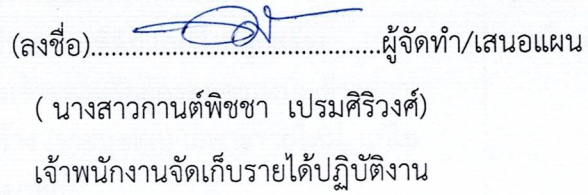 (ลงชื่อ)................................................ผู้จัดทำ/เสนอแผน
( นางสาวกานต์พิชชา เปรมศิริวงศ์)
เจ้าพนักงานจัดเก็บรายได้ปฏิบัติงาน